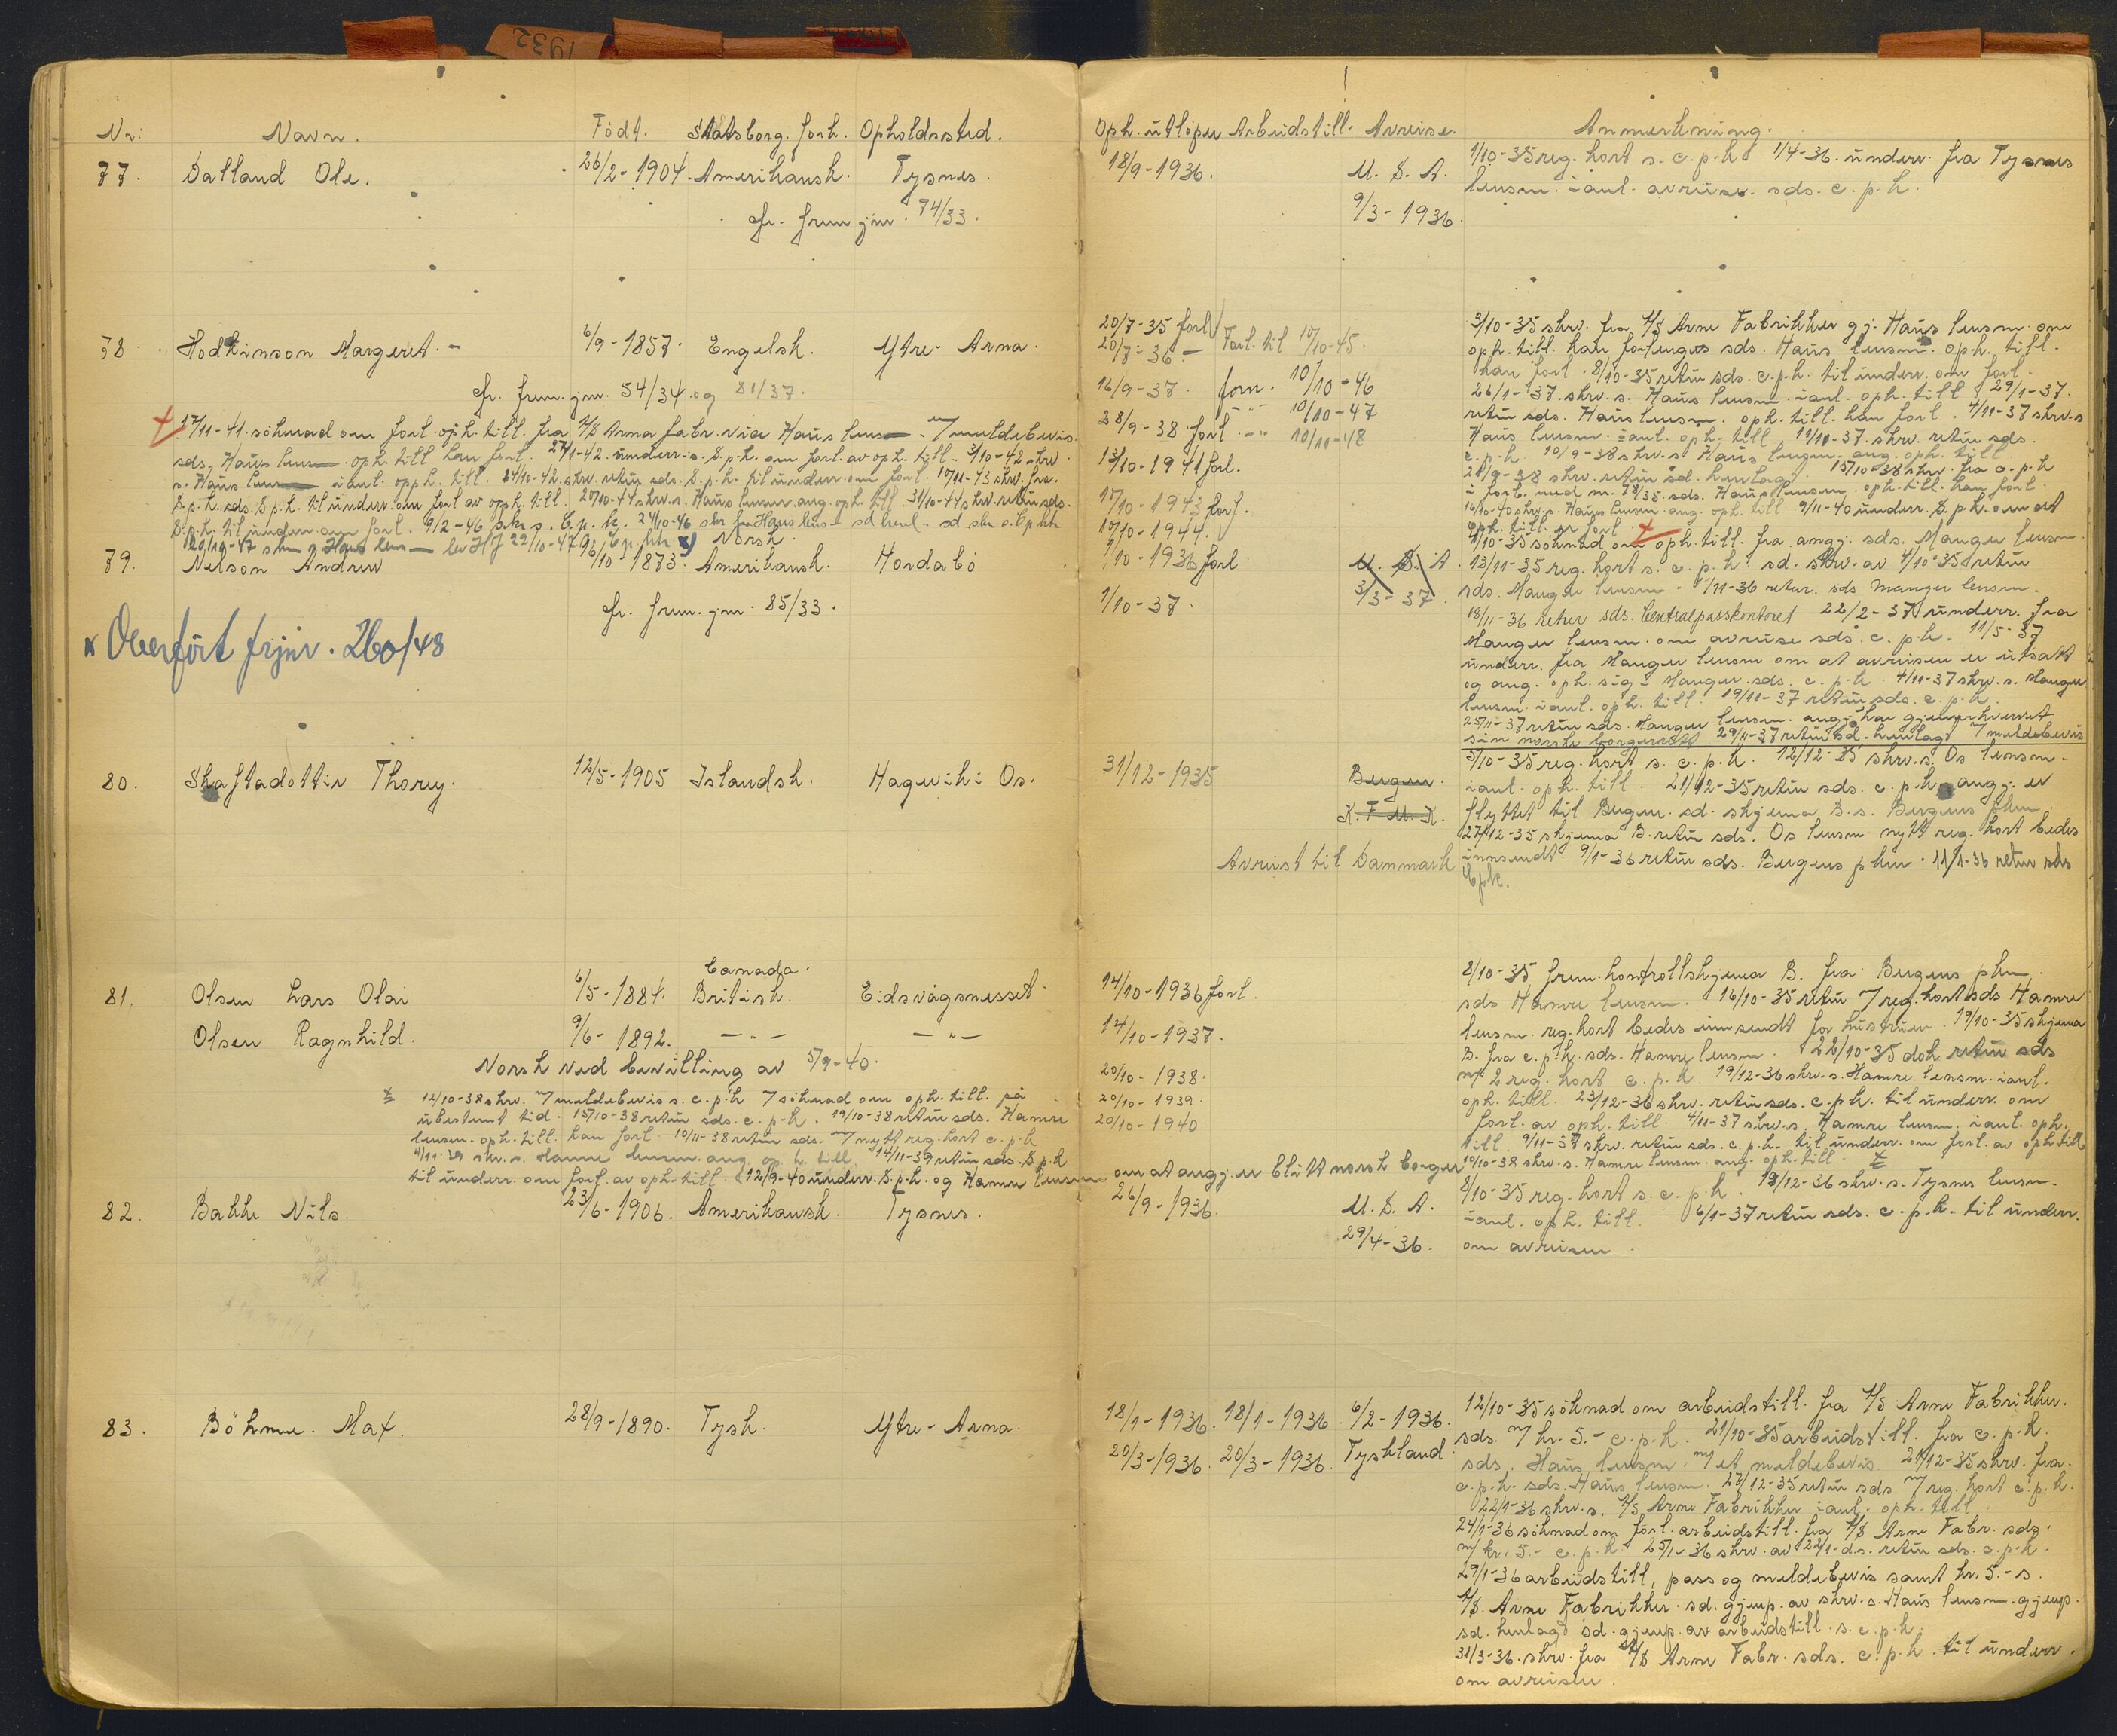 1932
Nr: Navn. Födt. Statsborg. forh. Opholdssted.
77. Dalland Ole. 26/2-1904. Amerikansk. Tysnes.
cfr. frem.jnr. 74/33.
78. Hodkinson Margeret. - 6/9-1857. Engelsk. Ytre-Arna.
cfr. frem.jnr. 54/34. og 81/37.
17/11-41. söknad om forl. oph. till. fra A/S Arna fabr. via Haus lensm. 7 meldebevis.
sds. Haus lensm oph. till kan forl. 27/1-42. underr. s. S.p.k. om forl. av oph. till. 3/10-42 skrv.
s. Haus lensm ianl. opph. till. 24/10-42. skrv. retur sds. S.p.k. til underr. om forl. 17/11-43 skrv. fra.
S.p.k. sds. S.p.k. til underr. om forl av oph. till. 20/10-44 skrv. s. Haus lensm ang. oph. till 31/10-44 skrv. retur sds.
S.p.k. til underr. om forl. 9/2-46 skr s. C.p.k. 24/10-46 skr fra Haus lens
20/10-47 Haus lens 22/10-47 x) Norsk.
79. Nelson Andrew 26/10-1873. Amerikansk. Hordabö
cfr. frem.jnr. 85/33.
x Overfört frjnr. 260/48
80. Skaftadottir Thorey. 12/5-1905 Islandsk. Hagevik i Os.
Canada.
81. Olsen Lars Olai 6/5-1884. British. Eidsvågsnesset.
Olsen Ragnhild. 9/6-1892. -"- -"-
Norsk ved bevilling av 5/9-40.
12/10-38 skrv. 7 meldebevis s. c.p.k 7 söknad om oph. till. på
ubestemt tid. 15/10-38 retur sds. c.p.k. 19/10-38 retur sds. Hamre
lensm. oph. till. kan forl. 10/11-38 retur sds. 7 nytt reg. kort c.p.k
4/11-39 skr. s. Hamre lensm. ang. oph. till. 14/11-39 retur sds. S.p.k
til underr. om forl. av oph. till. 12/9-40 underr. S.p.k. og Hamre lensm
82. Bakke Nils. 23/6-1906. Amerikansk. Tysnes.
83. Böhme. Max. 28/9-1890. Tysk. Ytre-Arna.
Oph. utlöper Arbeidstill. Avreise. Anmerkning.
18/9-1936. U.S.A. 1/10-35 reg. kort s. c.p.k. 1/4-36. underr. fra Tysnes
9/3-1936. lensm. ianl. avreise. sds. c.p.k.
20/7-35 forl Forl. til 10/10-45. 3/10-35 skrv. fra A/S Arne Fabrikker gj. Haus lensm. om
20/7-36 - oph. till. kan forlenges sds. Haus lensm. oph. till.
16/9-37. forn. 10/10-46 kan forl. 8/10-35 retur sds. c.p.k. til underr. om forl.
28/9-38 forl. -"- 10/10-47 26/1-37. skrv. s. Haus lensm. ianl. oph. till 29/1-37.
10/10-48 retur sds. Haus lensm. oph. till. kan forl. 4/11-37 skrv. s
13/10-1941 forl. Haus lensm. ianl. oph. till 19/11-37. skrv. retur sds.
17/10-1943 forl. c.p.k. 10/9-38 skrv. s Haus lensm. ang. oph. till
10/10-1944. 28/9-38 skrv. retur sd. henlagt 15/10-38 skrv. fra c.p.k
i forb. med nr. 78/35 sds. Haus lensm. oph. till. kan forl.
16/10-40 skrv. s. Haus lensm. ang. oph. till. 9/11-40 underr. S.p.k. om at
oph. till. er forl.
1/10-1936 forl. U.S.A. 4/10-35 söknad om oph. till. fra angj. sds. Manger lensm.
1/10-37. 3/3-37. 13/11-35 reg. kort s. c.p.k. sd. skrv. av 4/10-35 retur
sds. Manger lensm. 11/11-36 retur. sds Manger lensm.
18/11-36 retur sds. Centralpasskontoret 22/2-37 underr. fra
Manger lensm. om avreise sds. c.p.k. 11/5-37
underr. fra Manger lensm om at avreisen er utsatt
og ang. oph. sig i Manger. sds. c.p.k. 4/11-37 skrv. s. Manger
lensm. ianl. oph. till. 19/11-37 retur sds. c.p.k.
25/11-37 retur sds. Manger lensm. angj har gjenerhvervet
sin norske borgerrett. 29/11-37 retur sd. henlagt 7 meldebevis
31/12-1935 Bergen. 5/10-35 reg. kort s. c.p.k. 12/12-35 skrv. s. Os lensm.
K.F.U.K. ianl. oph. till. 21/12-35 retur sds. c.p.k. angj. er
flyttet til Bergen. sd. skjema B. s. Bergens pkm.
27/12-35 skjema B. retur sds. Os lensm nytt reg. kort bedes
Avreist til Danmark innsendt. 9/1-36 retur sds. Bergens pkm. 11/1-36 retur sds
Cpk.
14/10-1936 forl. 8/10-35 frem. kontrollskjema B. fra Bergens pkm
sds Hamre lensm. 16/10-35 retur 7 reg. kort sds Hamre
14/10-1937. lensm. reg. kort bedes innsendt for hustruen. 19/10-35 skjema
B. fra c.p.k. sds. Hamre lensm. 22/10-35 dok retur sds
20/10-1938. m/ 2 reg. kort c.p.k. 19/12-36 skrv. s. Hamre lensm. ianl.
20/10-1939. oph. till. 23/12-36 skrv. retur sds. c.p.k. til underr. om
20/10-1940 forl. av oph. till. 4/11-37 skrv. s. Hamre lensm. ianl. oph.
till. 9/11-37 skrv. retur sds. c.p.k. til underr. om forl. av oph till
om at angj. er blitt norsk borger 10/10-38 skrv. s. Hamre lensm. ang. oph. till.
26/9-1936. U.S.A. 8/10-35 reg. kort s. c.p.k. 18/12-36 skrv. s. Tysnes lensm.
ianl. oph. till. 6/1-37 retur sds. c.p.k. til underr.
29/4-36. om avreisen.
18/1-1936. 18/1-1936 6/2-1936. 12/10-35 söknad om arbeidstill. fra A/S Arne Fabrikker.
20/3-1936. 20/3-1936. Tyskland. sds. 7 kr. 5.- c.p.k. 21/10-35 arbeidstill. fra c.p.k.
sds. Haus lensm. m/ et meldebevis. 21/12-35 skrv. fra.
c.p.k. sds. Haus lensm. 27/12-35 retur sds 7 reg. kort c.p.k.
22/1-36 skrv. s. A/S Arne Fabrikker ianl. oph. till.
24/1-36 söknad om forl. arbeidstill. fra A/S Arne Fabr. sds.
m/ kr. 5.- c.p.k. 25/1-36 skrv. av 22/1-d.s. retur sds. c.p.k.
29/1-36 arbeidstill, pass og meldebevis samt kr. 5.- s.
A/S. Arne Fabrikker. sd. gjenp. av skrv. s. Haus lensm. gjenp.
sd. henlagt sd. gjenp. av arbeidstill. s. c.p.k.
31/3-36. skrv. fra A/S Arne Fabr. sds. c.p.k. til underr.
om avreisen.